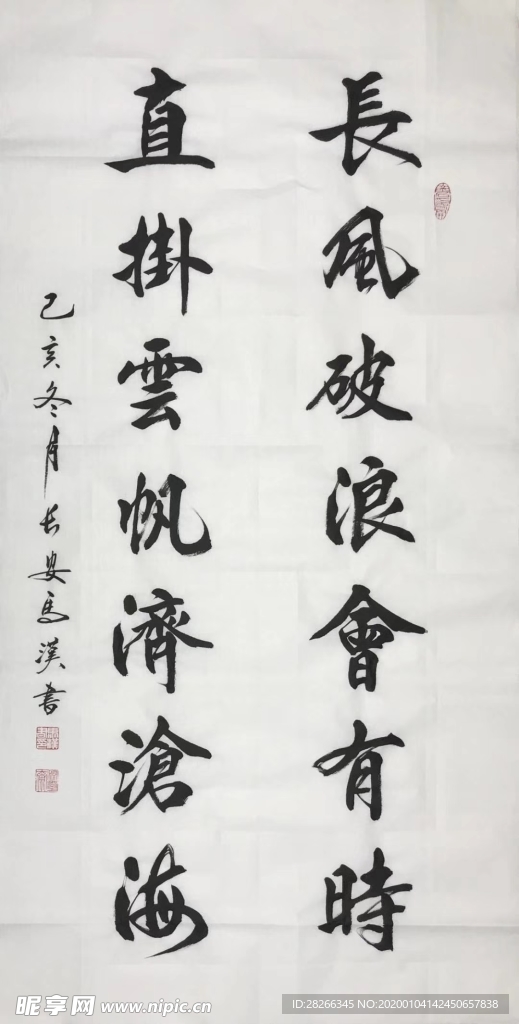 長風破浪會有時
直掛雲帆濟滄海
己亥冬月长安馬漢書
昵享网 www.nipic.cn
ID:28266345 NO:20200104142450657838